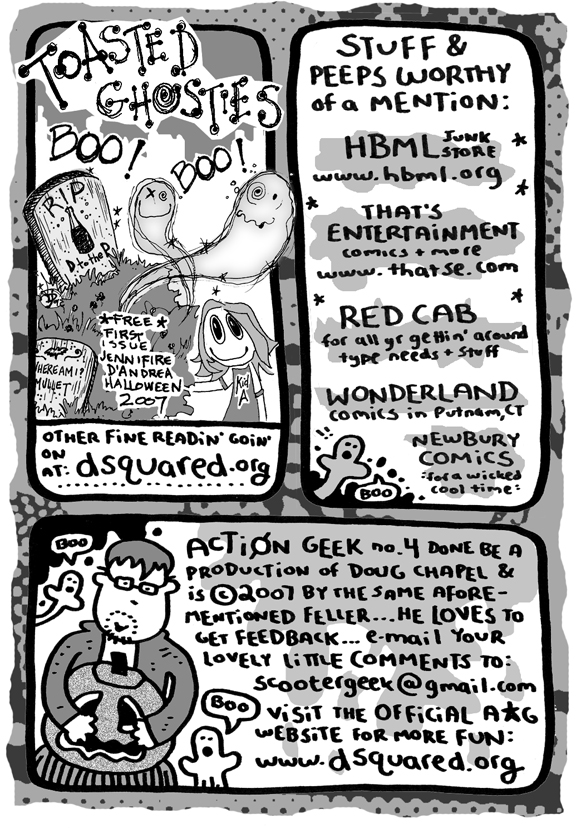 TOASTED
GHOSTIES
BOO!
BOO!
R.I.P
D to the P
WHERE AM I?
MULLET!!!
*FREE*
FIRST
ISSUE
JENNIFIRE
D'ANDREA
HALLOWEEN
2007
Kid
A
OTHER FINE READIN' GOIN'
ON
AT: dsquared.org
STUFF &
PEEPS WORTHY
of a MENTION:
HBML JUNK STORE
www.hbml.org
THAT'S
ENTERTAINMENT
comics + more
www.thatse.com
RED CAB
for all yr gettin' around
type needs + stuff
WONDERLAND
comics in Putnam, CT
NEWBURY
COMICS
:for a wicked
cool time:
BOO
BOO
ACTIØN GEEK no. 4 DONE BE A
PRODUCTION OF DOUG CHAPEL &
is ©2007 BY THE SAME AFORE-
MENTIONED FELLER... HE LOVES TO
GET FEEDBACK... e-mail YOUR
LOVELY LITTLE COMMENTS TO:
scootergeek@gmail.com
BOO
VISIT THE OFFICIAL A★G
WEBSITE FOR MORE FUN:
www.dsquared.org